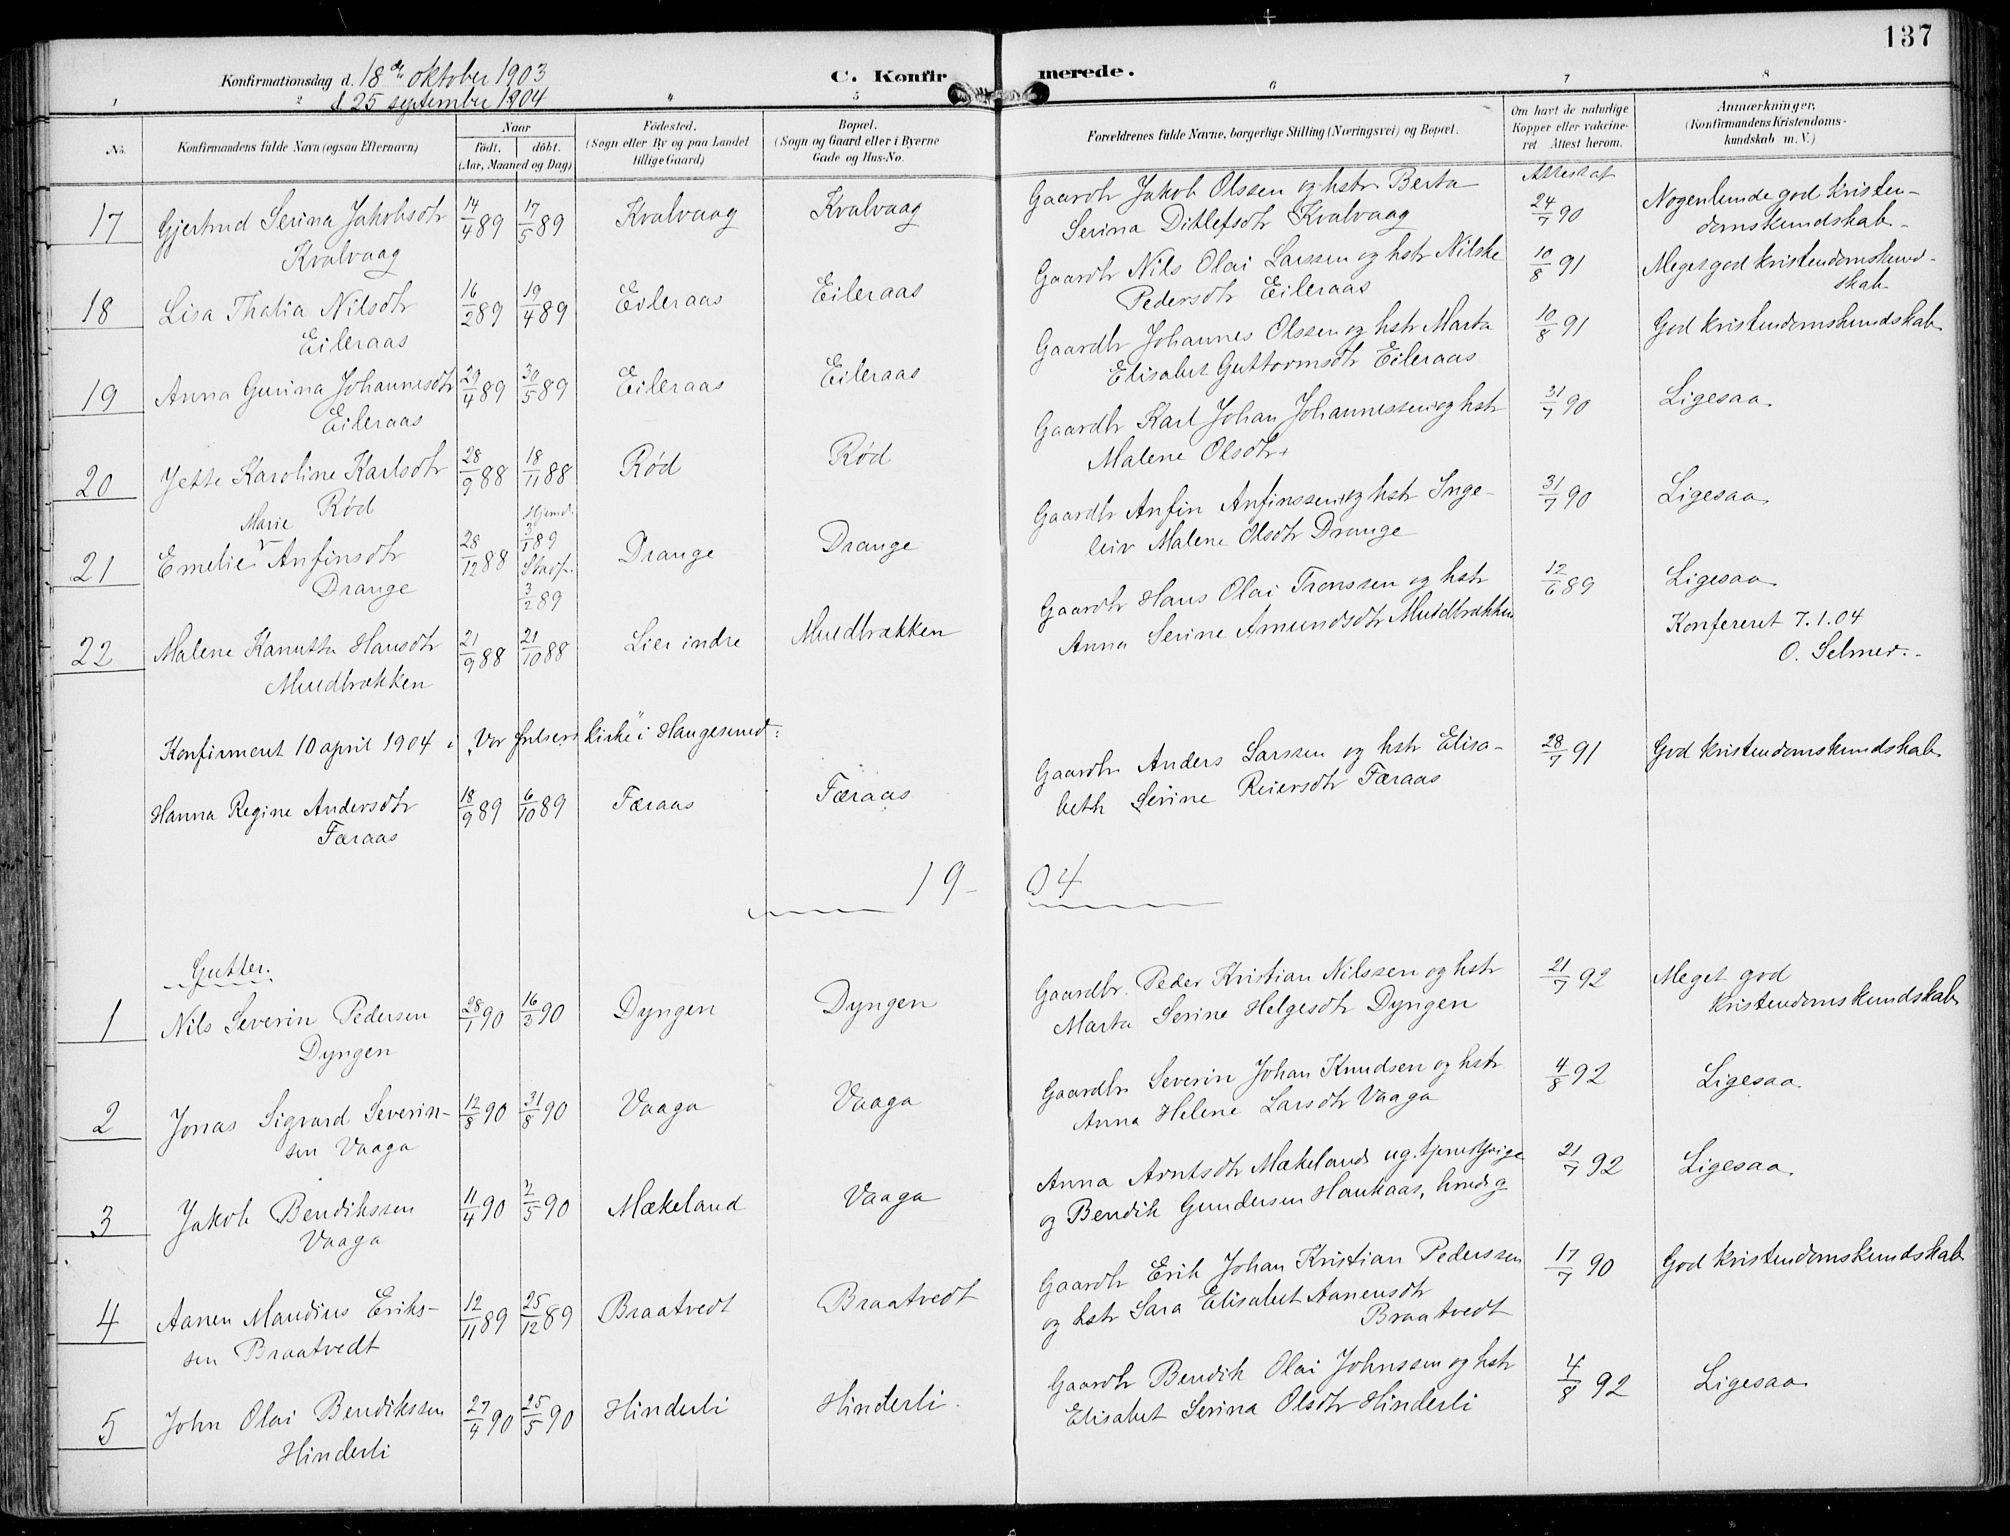 137
Konfirmationsdag d. 18de oktober 1903
d. 25 september 1904
C. Konfirmerede.
1 2 " 5 6 7 8
No. Konfirmandens fulde Navn (ogsaa Efternavn) Naar født. døbt. (Aar, Maaned og Dag)
Fødested. (Sogn eller By og paa Landet tillige Gaard)
Bopæl. (Sogn og Gaard eller i Byerne Gade og Hus-No.
Forældrenes fulde Navne, borgerlige Stilling (Næringsvei) og Bopæl.
Om havt de naturlige Kopper eller vakcineret Attest herom.
Anmærkninger. (Konfirmandens Kristendomskundskab m. V.)
Attestat
17 Gjertrud Serina Jakobsdtr 14/4 89 17/5 89 Kvalvaag Kvalvaag Gaardbr Jakob Olssen og hstr Berta 24/7 90 Nogenlunde god kristen-
Kvalvaag Serina Ditlefsdtr Kvalvaag domskundskab
18 Lisa Thalia Nilsdtr 16/2 89 19/4 89 Eileraas Eileraas Gaardbr Nils Olai Larssen og hstr Nilske 10/8 91 Meget god kristendomskund-
Eileraas Pedersdtr Eileraas skab
19 Anna Gurina Johannesdtr 29/4 89 30/5 89 Eileraas Eileraas Gaardbr Johannes Olssen og hstr Marta 10/8 91 God kristendomskundskab
Eileraas Elisabet Guttormsdtr Eileraas
20 Jette Karoline Karlsdtr 28/9 88 18/11 88 Rød Rød Gaardbr Karl Johan Johannessen og hstr 31/7 90 Ligesaa
Rød Malene Olsdtr
21 Emelie Marie Anfinsdtr 28/12 88 Hjemd. 3/1 89 Stadf. 3/2 89 Drange Drange Gaardbr Anfin Anfinssen og hstr Inge- 31/7 90 Ligesaa
Drange leiv Malene Olsdtr Drange
22 Malene Kanutta Hansdtr 21/9 88 21/10 88 Lier indre Muldbrækken Gaardbr Hans Olai Tronssen og hstr 12/6 89 Ligesaa
Muldbrækken Anna Serine Amundsdtr Muldbrækken
Konfereret 7.1.04
O. Selmer.
Konfirmeret 10 april 1904 i "Vor frelsers kirke" i Haugesund:
Hanna Regine Andersdtr 18/9 89 6/10 89 Færaas Færaas Gaardbr Anders Larssen og hstr Elisa- 28/7 91 God kristendomskundskab
Færaas beth Serine Reiersdtr Færaas
19-04
Gutter.
1 Nils Severin Pedersen 28/1 90 16/3 90 Dyngen Dyngen Gaardbr. Peder Kristian Nilssen og hstr 21/7 92 Meget god
Dyngen Marta Serine Helgesdtr Dyngen kristendomskundskab
2 Jonas Sigvard Severin- 12/8 90 31/8 90 Vaaga Vaaga Gaardbr Severin Johan Knudsen og hstr 4/8 92 Ligesaa
sen Vaaga Anna Helene Larsdtr Vaaga
3 Jakob Bendikssen 11/4 90 2/5 90 Mækeland Vaaga Anna Arntsdtr Mækeland ug. tjenestpige 21/7 92 Ligesaa.
Vaaga og Bendik Gundersen Haukaas,
4 Aanen Maudius Eriks- 12/11 89 25/12 89 Braatvedt Braatvedt Gaardbr Erik Johan Kristian Pederssen 17/7 90 God kristendomskundskab
sen Braatvedt og hstr Sara Elisabet Aanensdtr
Braatvedt
5 John Olai Bendikssen 27/4 90 25/5 90 Hinderli Hinderli. Gaardbr Bendik Olai Johnssen og hstr 4/8 92 Ligesaa
Hinderli Elisabet Serina Olsdtr Hinderli